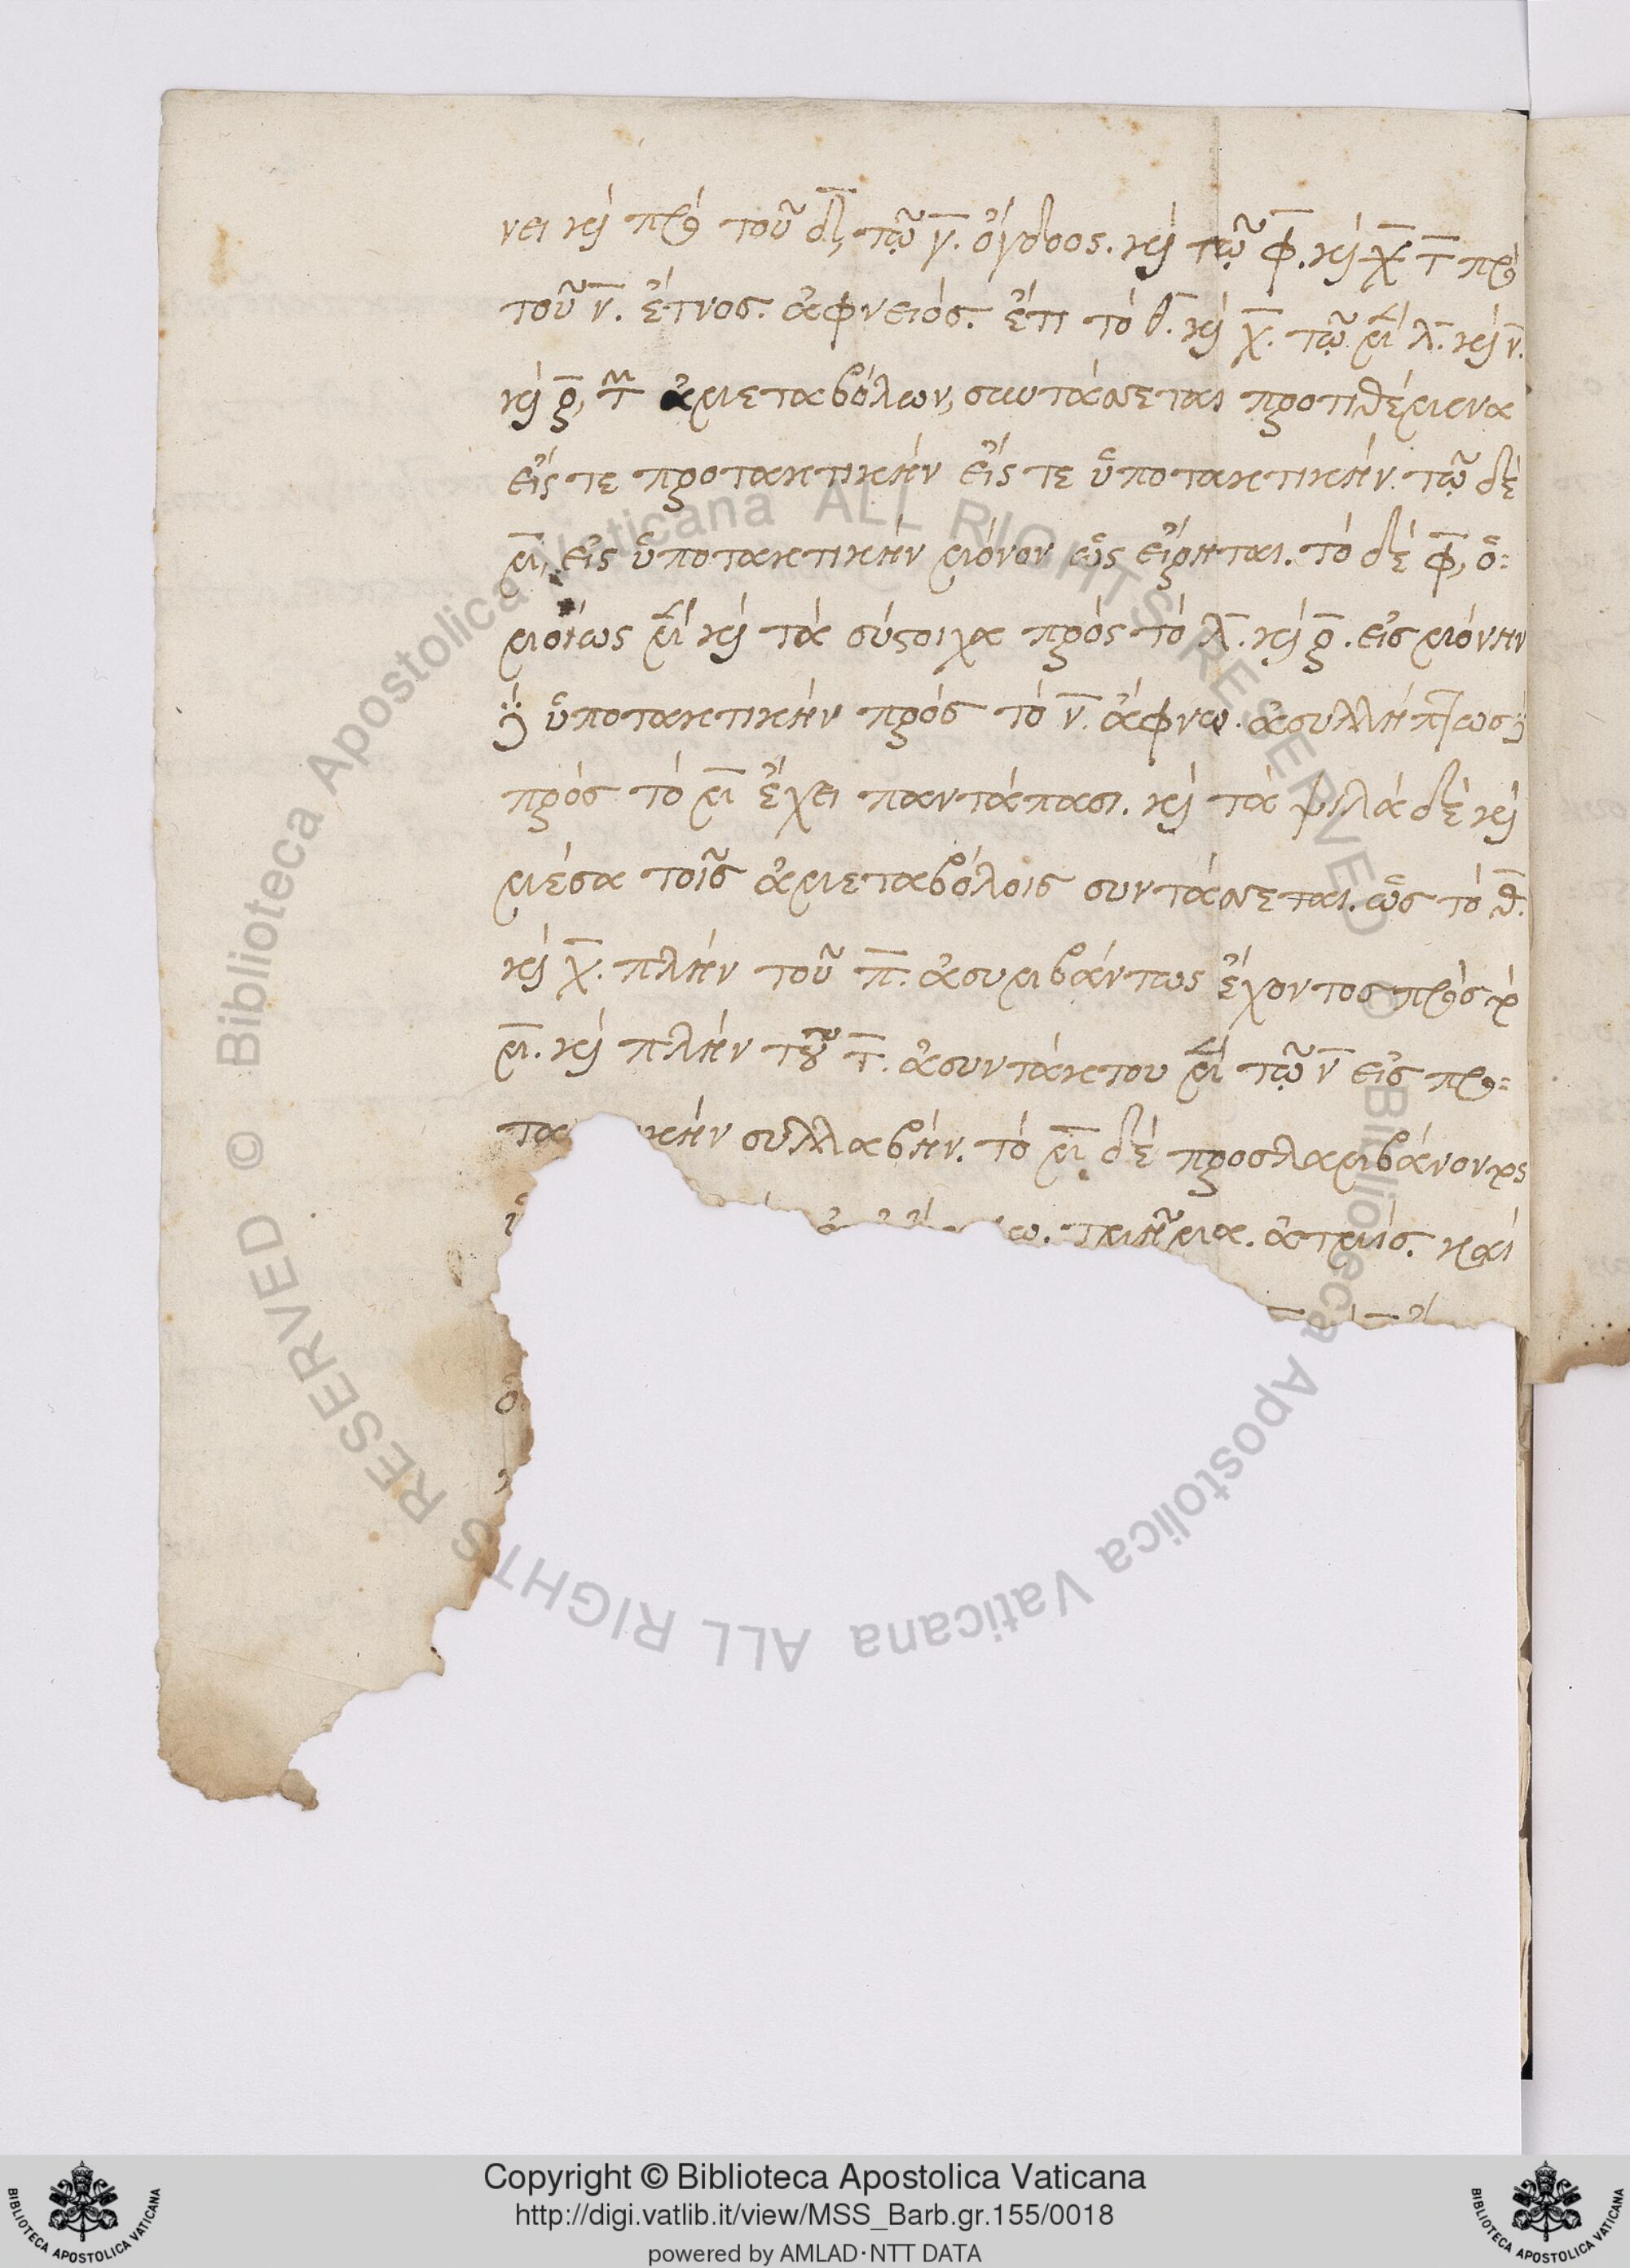 νει κὴ πρὸ τοῦ δ̅, τῷ γ̅. ὄγδοος. κὴ τῷ φ̅. κὴ χ̅ τ̅ πρὸ
τοῦ ν̅. ἔτνος. ἀφνειός. ἔτι τὸ θ̅. κὴ χ̅. τῷ μ̅ λ̅. κὴ ν̅.
κὴ ρ̅, τῶν ἀμεταβόλων, συντάσσεται προτιθέμενα
εἴς τε προτακτικὴν εἴς τε ὑποτακτικήν. τῷ δὲ
μ̅, εἰς ὑποτακτικὴν μόνον ὡς εἴρηται. τὸ δὲ φ̅, ὁ=
μοίως μὲν κὴ τὰ σύστοιχα πρὸς τὸ λ̅. κὴ ρ̅. εἰς μόνην
ὑποτακτικὴν πρὸς τὸ ν̅. ἄφνω. ἀσυλλήπτως
πρὸς τὸ μ̅ ἔχει παντάπασι. κὴ τὰ ψιλὰ δὲ κὴ
μέσα τοῖς ἀμεταβόλοις συντάσσεται. ὡς τὸ θ̅.
κὴ χ̅. πλὴν τοῦ π̅. ἀσυμβάντως ἔχοντος πρὸς τὸ
μ̅. κὴ πλὴν τοῦ τ̅. ἀσυντάκτου μὲν τῷ ν̅ εἰς προ=
τα κὴν συλλαβήν. τὸ μ̅ δὲ προσλαμβάνον
τμῆμα. ἀτμίς. καὶ
Copyright © Biblioteca Apostolica Vaticana
http://digi.vatlib.it/view/MSS_Barb.gr.155/0018
powered by AMLAD·NTT DATA
BIBLIOTECA APOSTOLICA VATICANA
BIBLIOTECA APOSTOLICA VATICANA
© Biblioteca Apostolica Vaticana ALL RIGHTS RESERVED
© Biblioteca Apostolica Vaticana ALL RIGHTS RESERVED